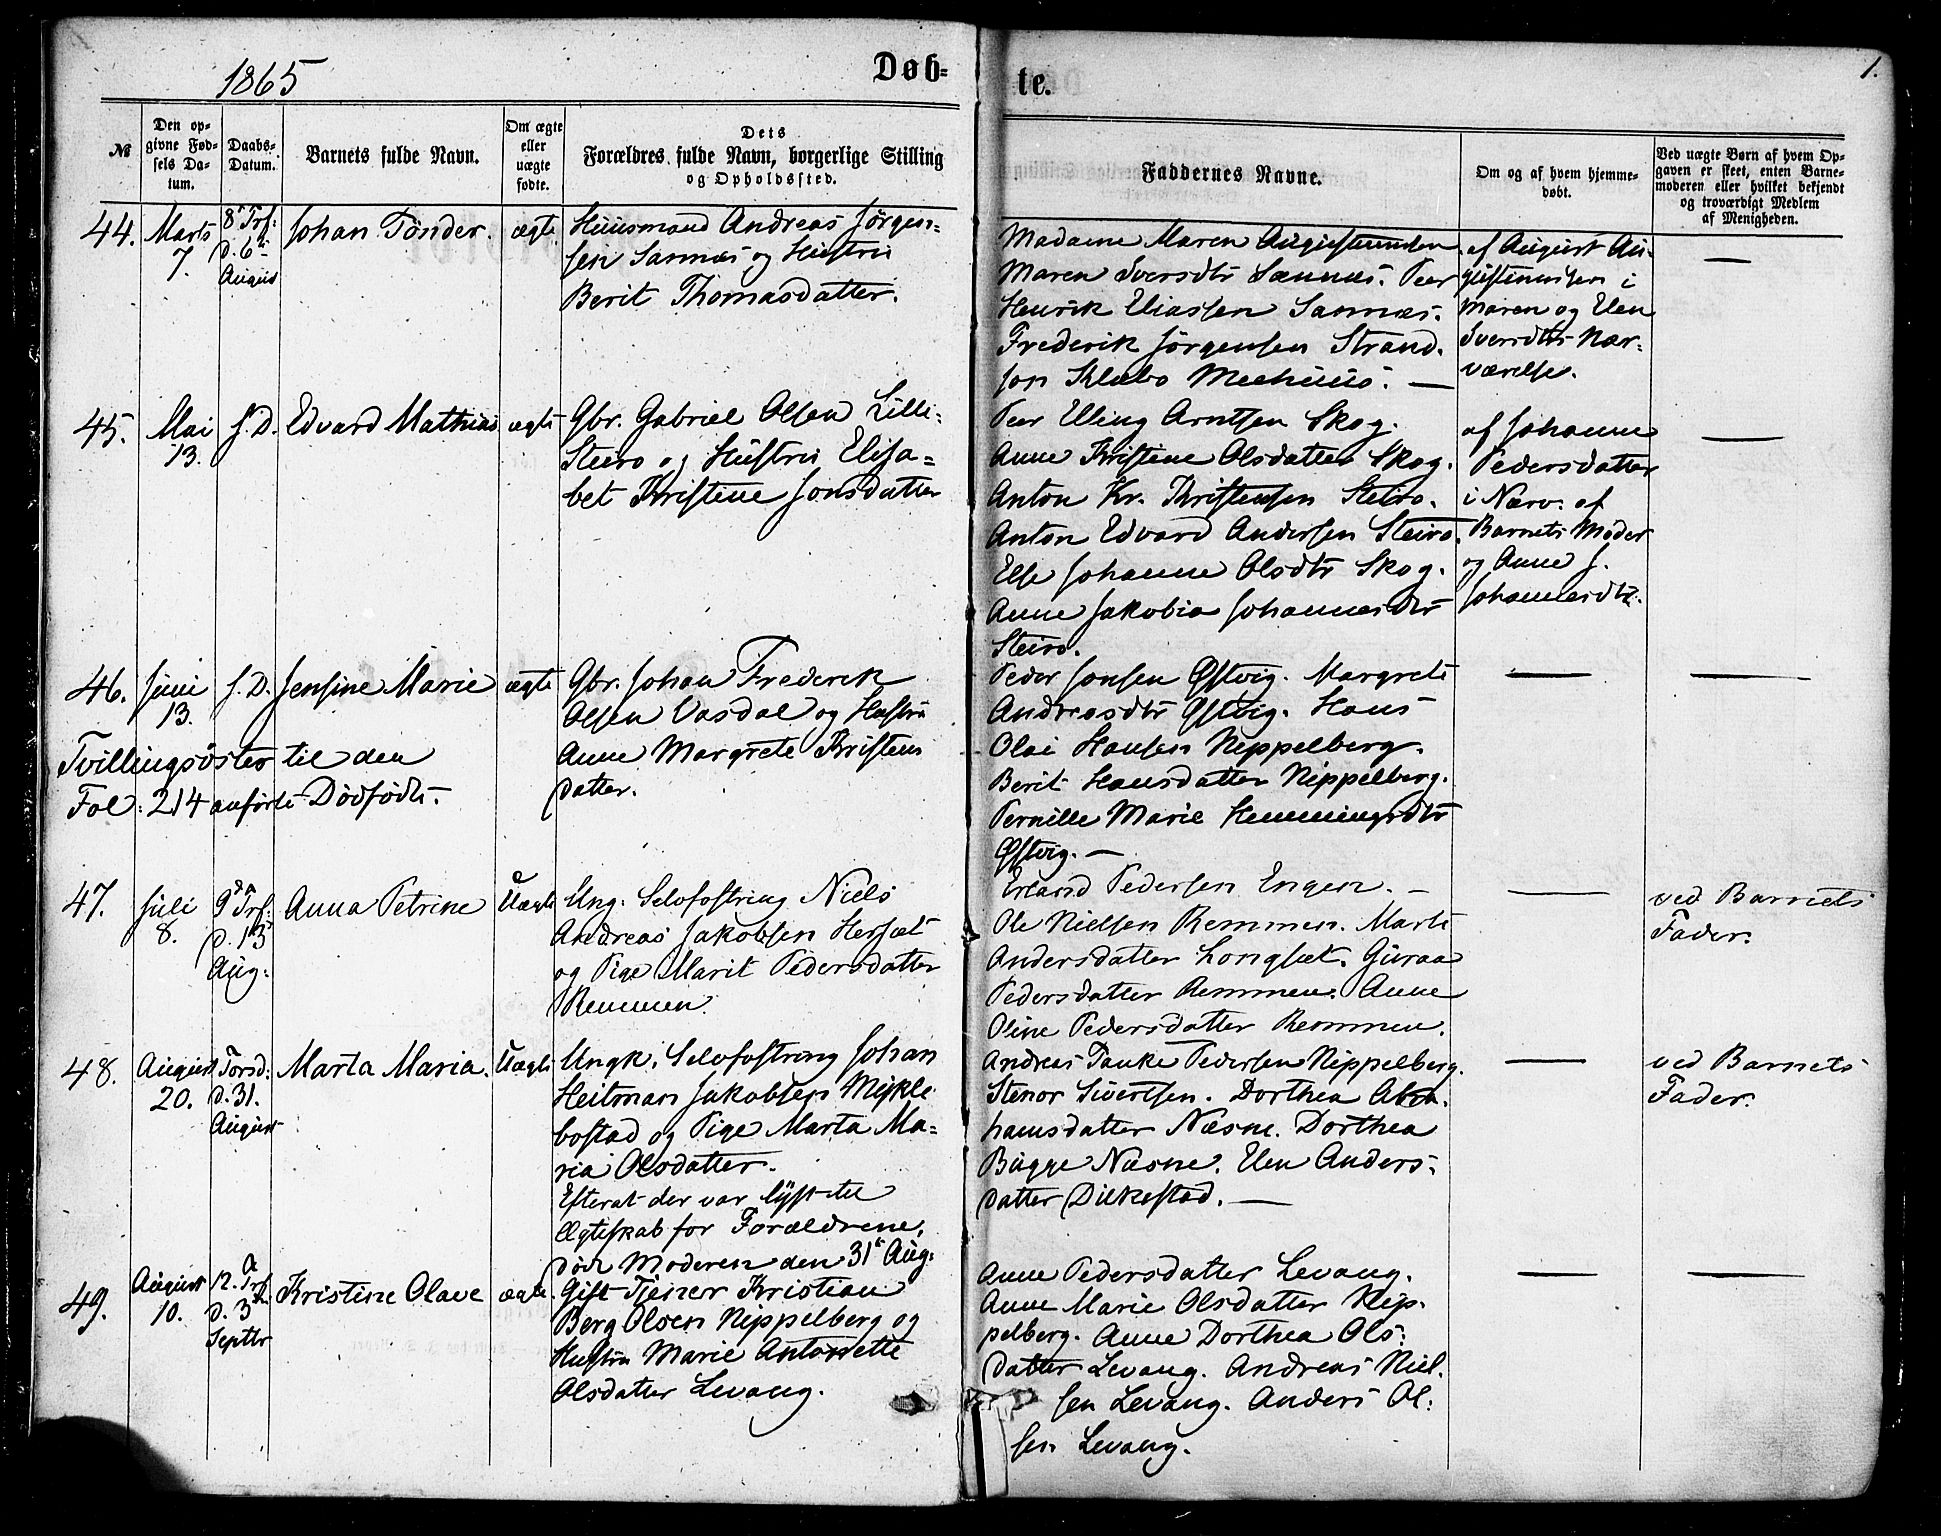 1865
Døb-
te.
1.
№
Den op-
givne Fød-
sels Da-
tum.
Daabs-
Datum.
Barnets fulde Navn.
Om ægte
eller
uægte
fødte.
Dets
Forældres fulde Navn, borgerlige Stilling
og Opholdssted.
Faddernes Navne.
Om og af hvem hjemme-
døbt.
Ved uægte Børn af hvem Op-
gaven er skeet, enten Barne-
moderen eller hvilket bekjendt
og troværdigt Medlem
af Menigheden.
44.
Marts
7.
8de Trf:
d. 6te
August
Johan Tönder.
ægte
Huusmand Andreas Jörgen-
sen Sannæs og Hustru
Berit Thomasdatter.
Madame Maren
Maren Sversdtr Sannæs. Peer
Henrik Eliassen Sannæs.
Frederik Jörgensen Strand.
Klæbo
af August Au-
gustinussen i
Maren og Elen
Sversdtrs Nær-
værelse.
—
45.
Mai
13.
s. D.
Edvard Mathias
ægte
Gbr. Gabriel Olsen Lille
Steiro og Hustru Elisa-
bet Kristine Jonsdatter
Peer Elling Arntsen Skog.
Anne Kristine Olsdatter Skog.
Anton Kr. Kristensen Steiro.
Anton Edvard Andersen Steiro.
Else Johanne Olsdtr Skog.
Anne Jakobia Johannesdtr
Steiro.
af Johanne
Pedersdatter
i Nærv. af
Barnets Moder
og Anne J.
Johannesdtr.
—
46.
Juni
13.
s. D.
Jensine Marie
ægte
Gbr. Johan Frederik
Olsen Vasdal og Hustru
Anne Margrete Kristens
datter.
Tvillingsöster til den
Fol: 214 anförte Dödfödte.
Peder Jonsen Østvig. Margrete
Andreasdtr Østvig. Hans
Olai Hansen Nippelberg.
Berit Hansdatter Nippelberg.
Pernille Marie Hemmingsdtr
Østvig. —
—
—
47.
Juli
8.
9de Trf:
d. 13
Aug:
Anna Petrine
Uægte
Ung. Selvfostring Niels
Andreas Jakobsen Hersæt
og Pige Marit Pedersdatter
Remmen.
Erland Pedersen Engen. —
Ole Nielsen Remmen. Marte
Andersdatter Longsæt. Guraa
Pedersdatter Remmen. Anne
Oline Pedersdatter Remmen.
—
ved Barnets
Fader.
48.
August
20.
Torsd:
d. 31.
August
Marta Maria.
Uægte
Ungk. Selvfostring Johan
Heitman Jakobsen Mykle
bostad og Pige Marta Ma-
ria Olsdatter.
Efterat der var lyst til
Ægteskab for Forældrene,
döde Moderen den 31te Aug.
Andreas Tanke Pedersen Nippelberg.
Stenor Sivertsen. Dorthea Abra-
hamsdatter Næsne. Dorthea
Bugge Næsne. Elen Anders-
datter Dirkestad. —
—
ved Barnets
Fader.
49.
August
10.
12. Trf
d. 3de
Septbr
Kristine Olave
ægte.
Gift Tjener Kristian
Berg Olsen Nippelberg og
Hustru Marie Antonette
Olsdatter Levang.
Anne Pedersdatter Levang.
Anne Marie Olsdatter Nip-
pelberg. Anne Dorthea Ols-
datter Levang. Andreas Niel-
sen Levang. Anders Ol-
sen Levang.
—
—